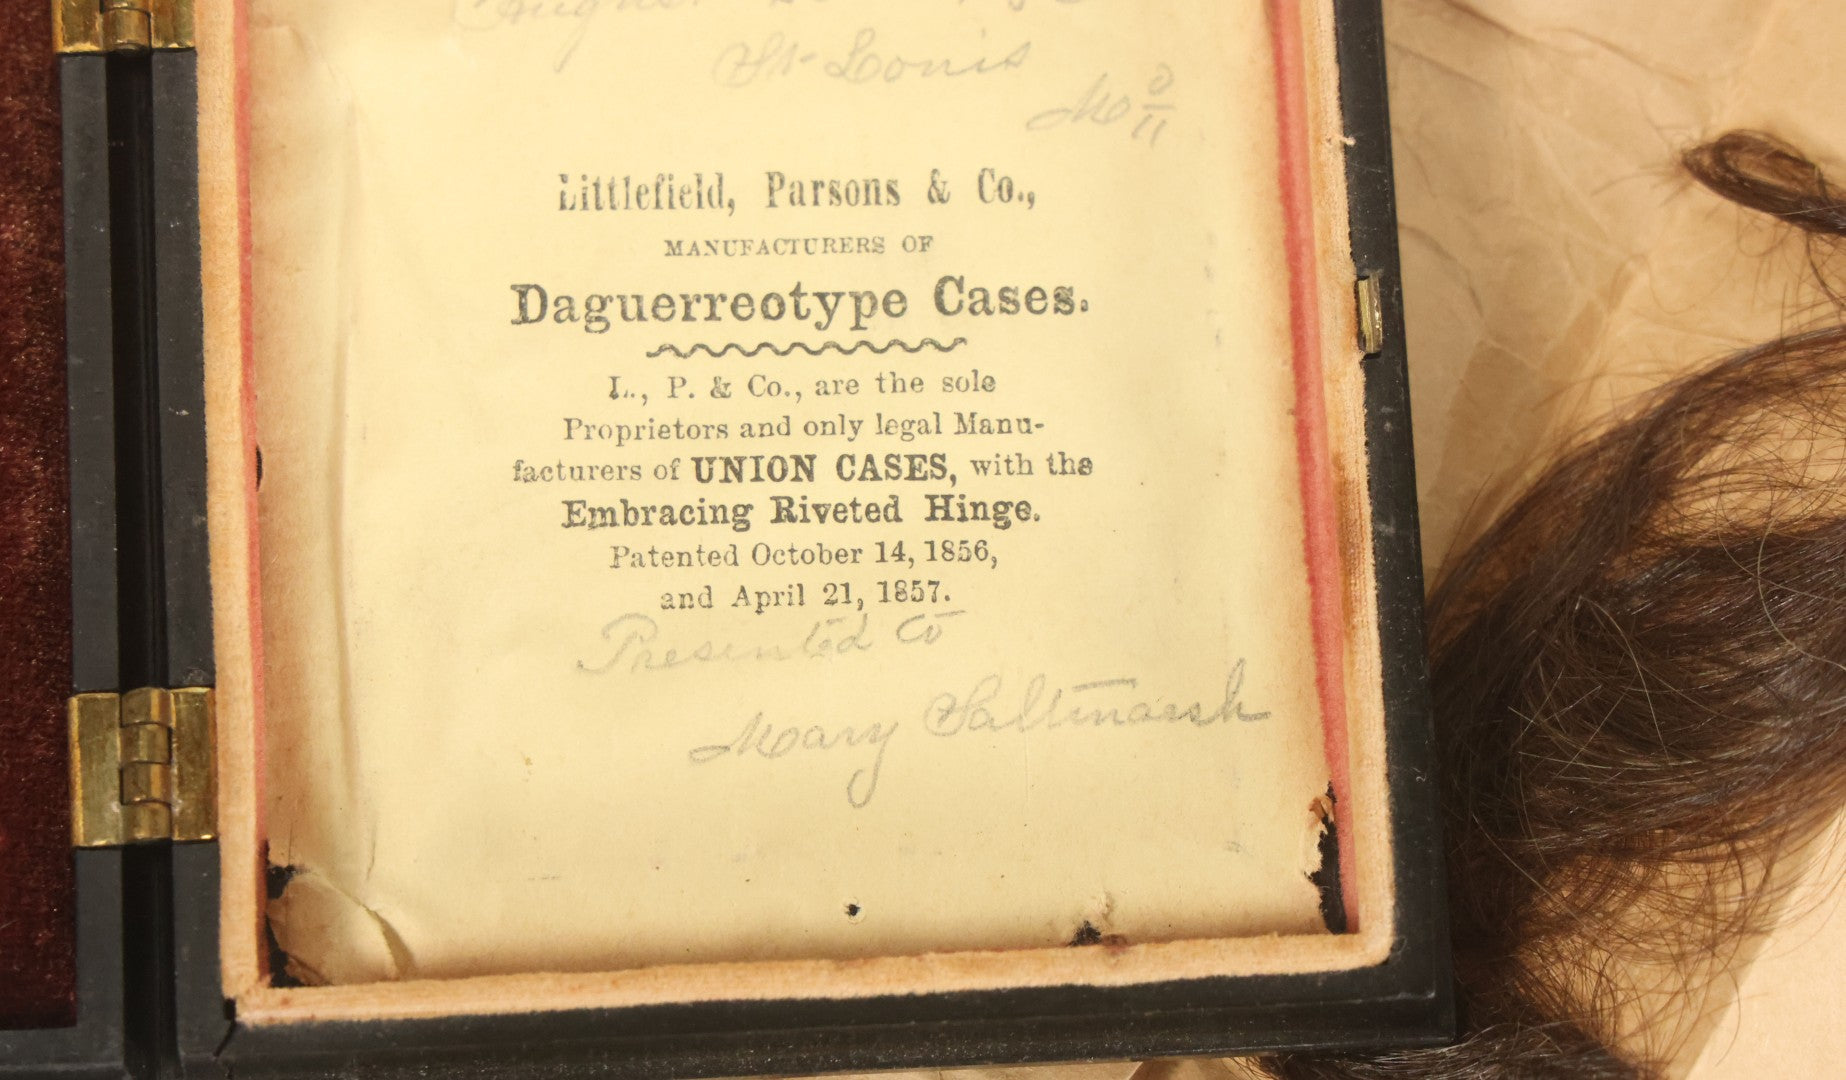 August
St Louis
Mo
Littlefield, Parsons & Co.,
MANUFACTURERS OF
Daguerreotype Cases.
L., P. & Co., are the sole
Proprietors and only legal Manu-
facturers of UNION CASES, with the
Embracing Riveted Hinge.
Patented October 14, 1856,
and April 21, 1857.
Presented to
Mary Saltmarsh